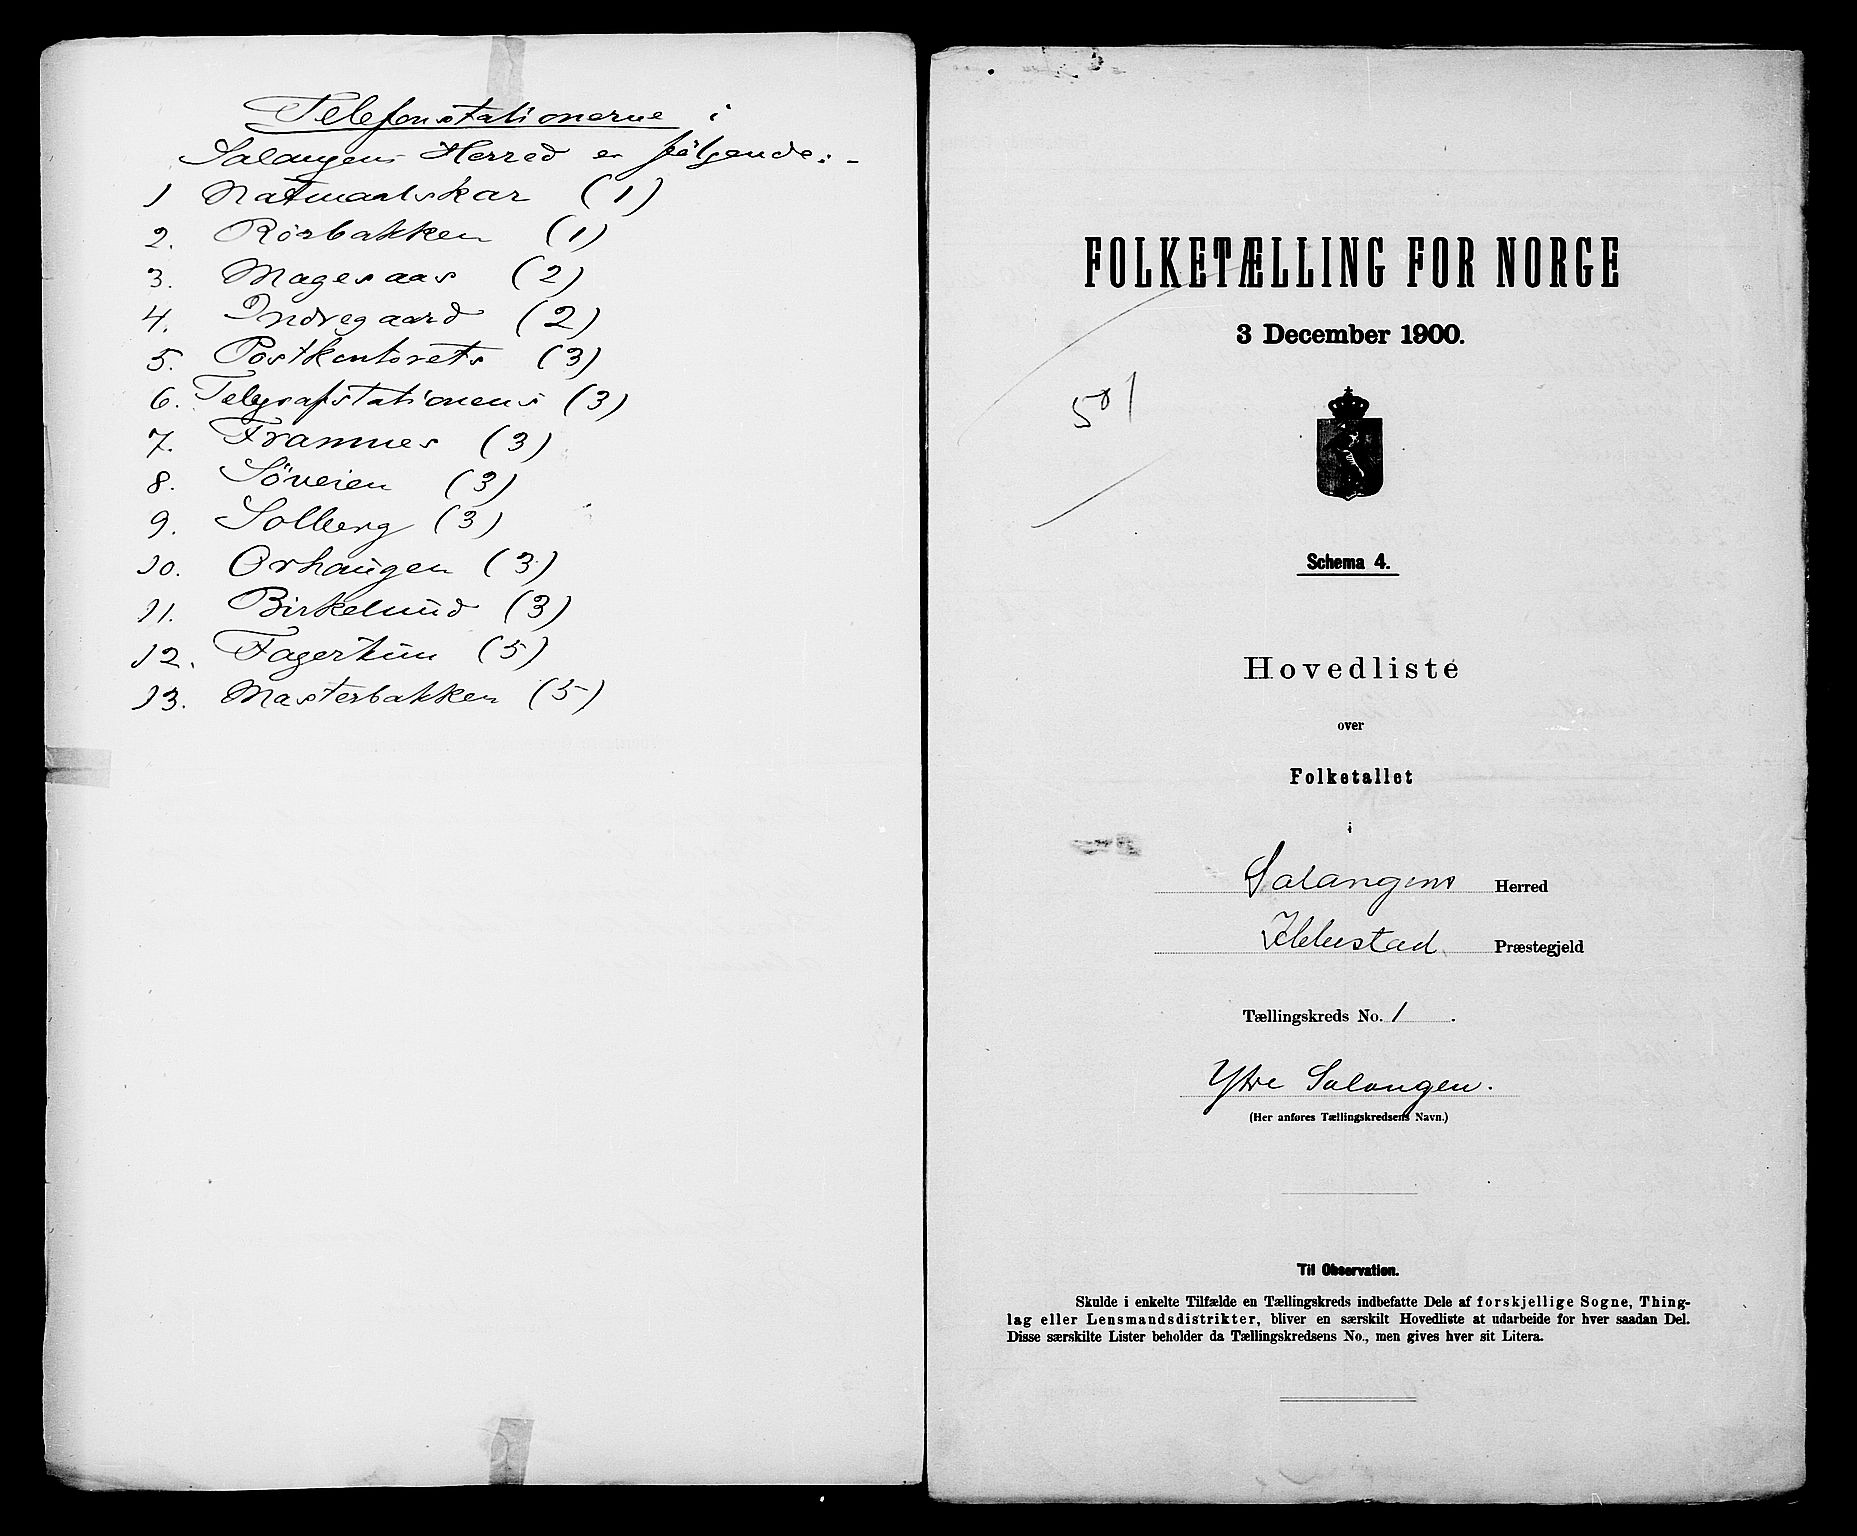 Telefonstationerne i
Salangens Herred er følgende:-
1 Natmaalskar (1)
2. Rörbakken (1)
3. Magesaas (2)
4. Indregaard (2)
5. Postkontorets (3)
6. Telegrafstationens (3)
7. Framnes (3)
8. Söveien (3)
9. Solberg (3)
10. Orhaugen (3)
11. Birkelund (3)
12. Fagertun (5)
13. Masterbakken (5)
FOLKETÆLLING FOR NORGE
3 December 1900.
501
Schema 4.
Hovedliste
over
Folketallet
i
Salangens Herred
Ibbestad Præstegjeld
Tællingskreds No. 1.
Ytre Salangen.
(Her anføres Tællingskredsens Navn.)
Til Observation.
Skulde i enkelte Tilfælde en Tællingskreds indbefatte Dele af forskjellige Sogne, Thing-
lag eller Lensmandsdistrikter, bliver en særskilt Hovedliste at udarbeide for hver saadan Del.
Disse særskilte Lister beholder da Tællingskredsens No., men gives hver sit Litera.